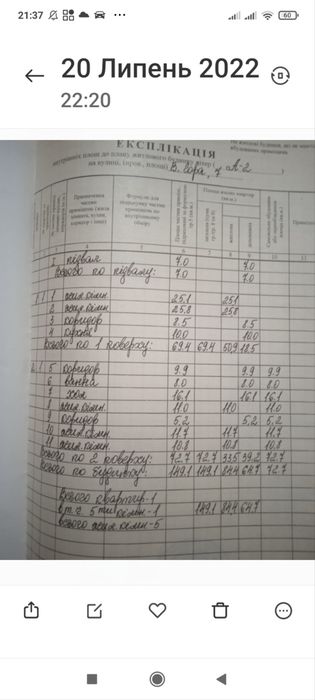 21:37
60
20 Липень 2022
22:20
ЕКСПЛІКАЦІЯ
внутрішніх площ до плану житлового будинку літер (
на вулиці, (пров., площі) В. Гора, 7 "А-2
Призначення
частин
приміщень (жила
кімната, кухня,
коридор і інш.)
Формули для
підрахунку частин
приміщень по
внутрішньому
обміру
Площа жилих квартир
(кв.м.)
4 5 6 7 8 9 10 11
1 підвал 7.0 7.0
Всього по підвалу: 7.0 7.0
1 1 жил.кімн. 25.1 25.1
2 жил.кімн. 25.8 25.8
3 коридор 8.5 8.5
4 кухня 10.0 10.0
Всього по 1 поверху: 69.4 69.4 50.9 18.5
2 1 5 коридор 9.9 9.9 9.9
6 ванна 8.0 8.0 8.0
7 хол 16.1 16.1 16.1
8 жил.кімн. 11.0 11.0 11.0
9 коридор 5.2 5.2 5.2
10 жил.кімн. 11.7 11.7 11.7
11 жил.кімн. 10.8 10.8 10.8
Всього по 2 поверху: 72.7 72.7 33.5 39.2 72.7
Всього по будинку: 149.1 149.1 84.4 64.7 72.7
Всього квартир-1
в т.ч. 5ти кімн-1 149.1 84.4 64.7
всього жил.кімн-5